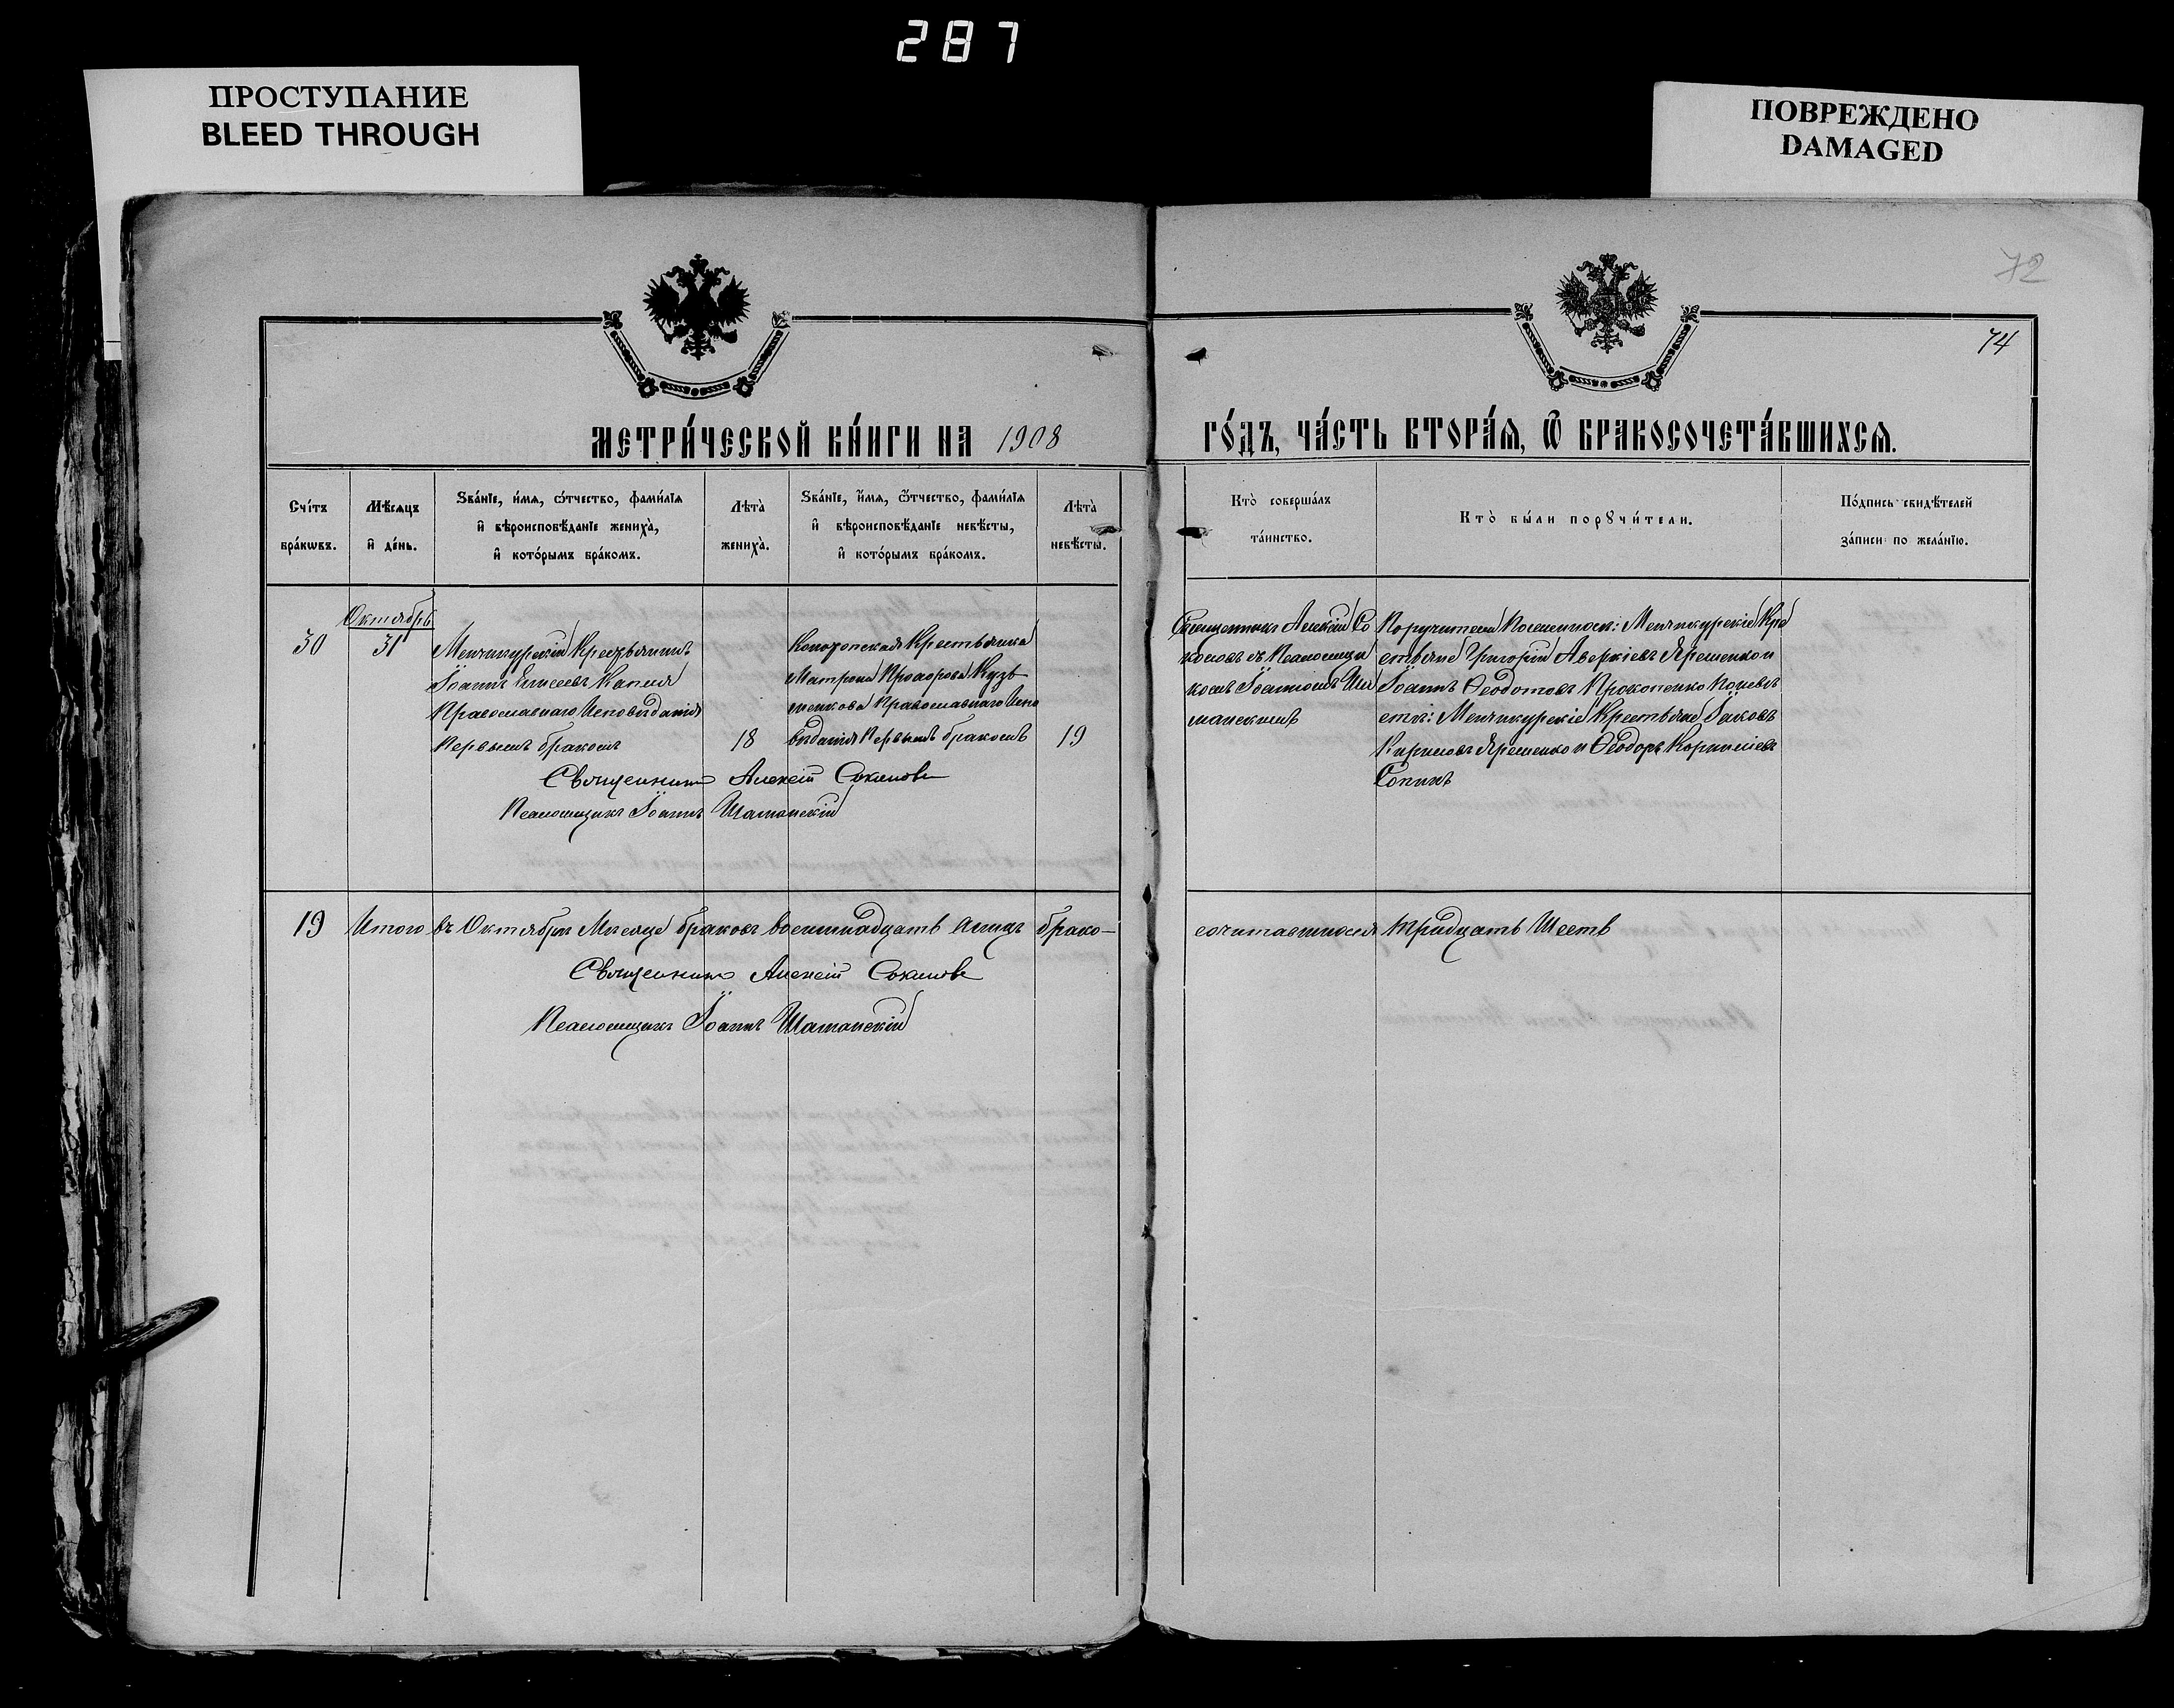 287
ПРОСТУПАНИЕ
BLEED THROUGH
ПОВРЕЖДЕНО
DAMAGED
72
74
МЕТРИ́ЧЕСКОЙ КНИ́ГИ НА 1908
ГО́ДЪ, ЧА́СТЬ ВТОРА́Я, Ѿ БРАКОСОЧЕТА́ВШИХСЯ.
Счі́тъ
бра́кѡвъ.
Мѣ́сяцъ
и҆ де́нь.
Зва́нїе, и҆́мя, ѻ҆́тчество, фами́лїя
и҆ вѣроисповѣ́данїе жениха̀,
и҆ кото́рымъ бра́комъ.
Лѣта̀
жениха̀.
Зва́нїе, и҆́мя, ѻ҆́тчество, фами́лїя
и҆ вѣроисповѣ́данїе невѣ́сты,
и҆ кото́рымъ бра́комъ.
Лѣта̀
невѣ́сты.
Кто̀ соверша́лъ
та́инство.
Кто̀ бы́ли порꙋчи́тели.
По́дпись свидѣ́телей
за́писи по жела́нїю.
30
Октябрь
31
Менчикурскій Крестьянинъ
Іоаннъ Елисеевъ Капля
Православнаго Исповѣданія
Первымъ бракомъ
18
Конотопская Крестьянка
Матрона Прохорова Кузь
менкова Православнаго Испо
вѣданія Первымъ бракомъ
19
Священникъ Алексій Соколовъ
Псаломщикъ Іоаннъ Шаманскій
Священникъ Алексій Со
коловъ съ Псаломщи
комъ Іоанномъ Ша
манскимъ
Поручители По женихѣ: Менчикурскіе Кре
стьяне Григорій Аверкіевъ Яременко и
Іоаннъ Ѳеодотовъ Прокопенко По невѣ
стѣ: Менчикурскіе Крестьяне Іаковъ
Кириловъ Яременко и Ѳеодоръ Корниліевъ
Сопинъ
19 Итого въ Октябрѣ Мѣсяце браковъ восемнадцать а лицъ брако-
сочитавшихся тридцать Шесть
Священникъ Алексій Соколовъ
Псаломщикъ Іоаннъ Шаманскій